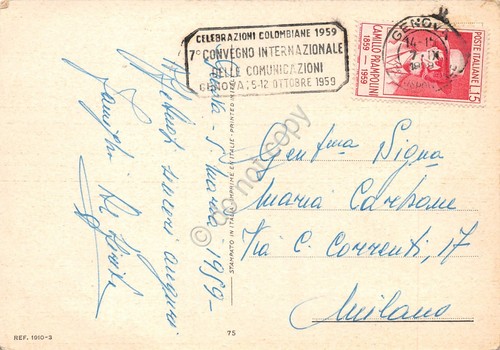 CELEBRAZIONI COLOMBIANE 1959
7° CONVEGNO INTERNAZIONALE
DELLE COMUNICAZIONI
GENOVA: 5-12 OTTOBRE 1959
GENOVA
14-15
POSTE ITALIANE L.15
CAMILLO PRAMPOLINI
1859 1959
1959-
auguri
Famiglia
STAMPATO IN ITALIA - IMPRIMÉ EN ITALIE - PRINTED IN ITALY
do not copy
Gent/ma Sig/na
Maria Carbone
Via C. Correnti, 17
Milano
REF. 1910-3
75